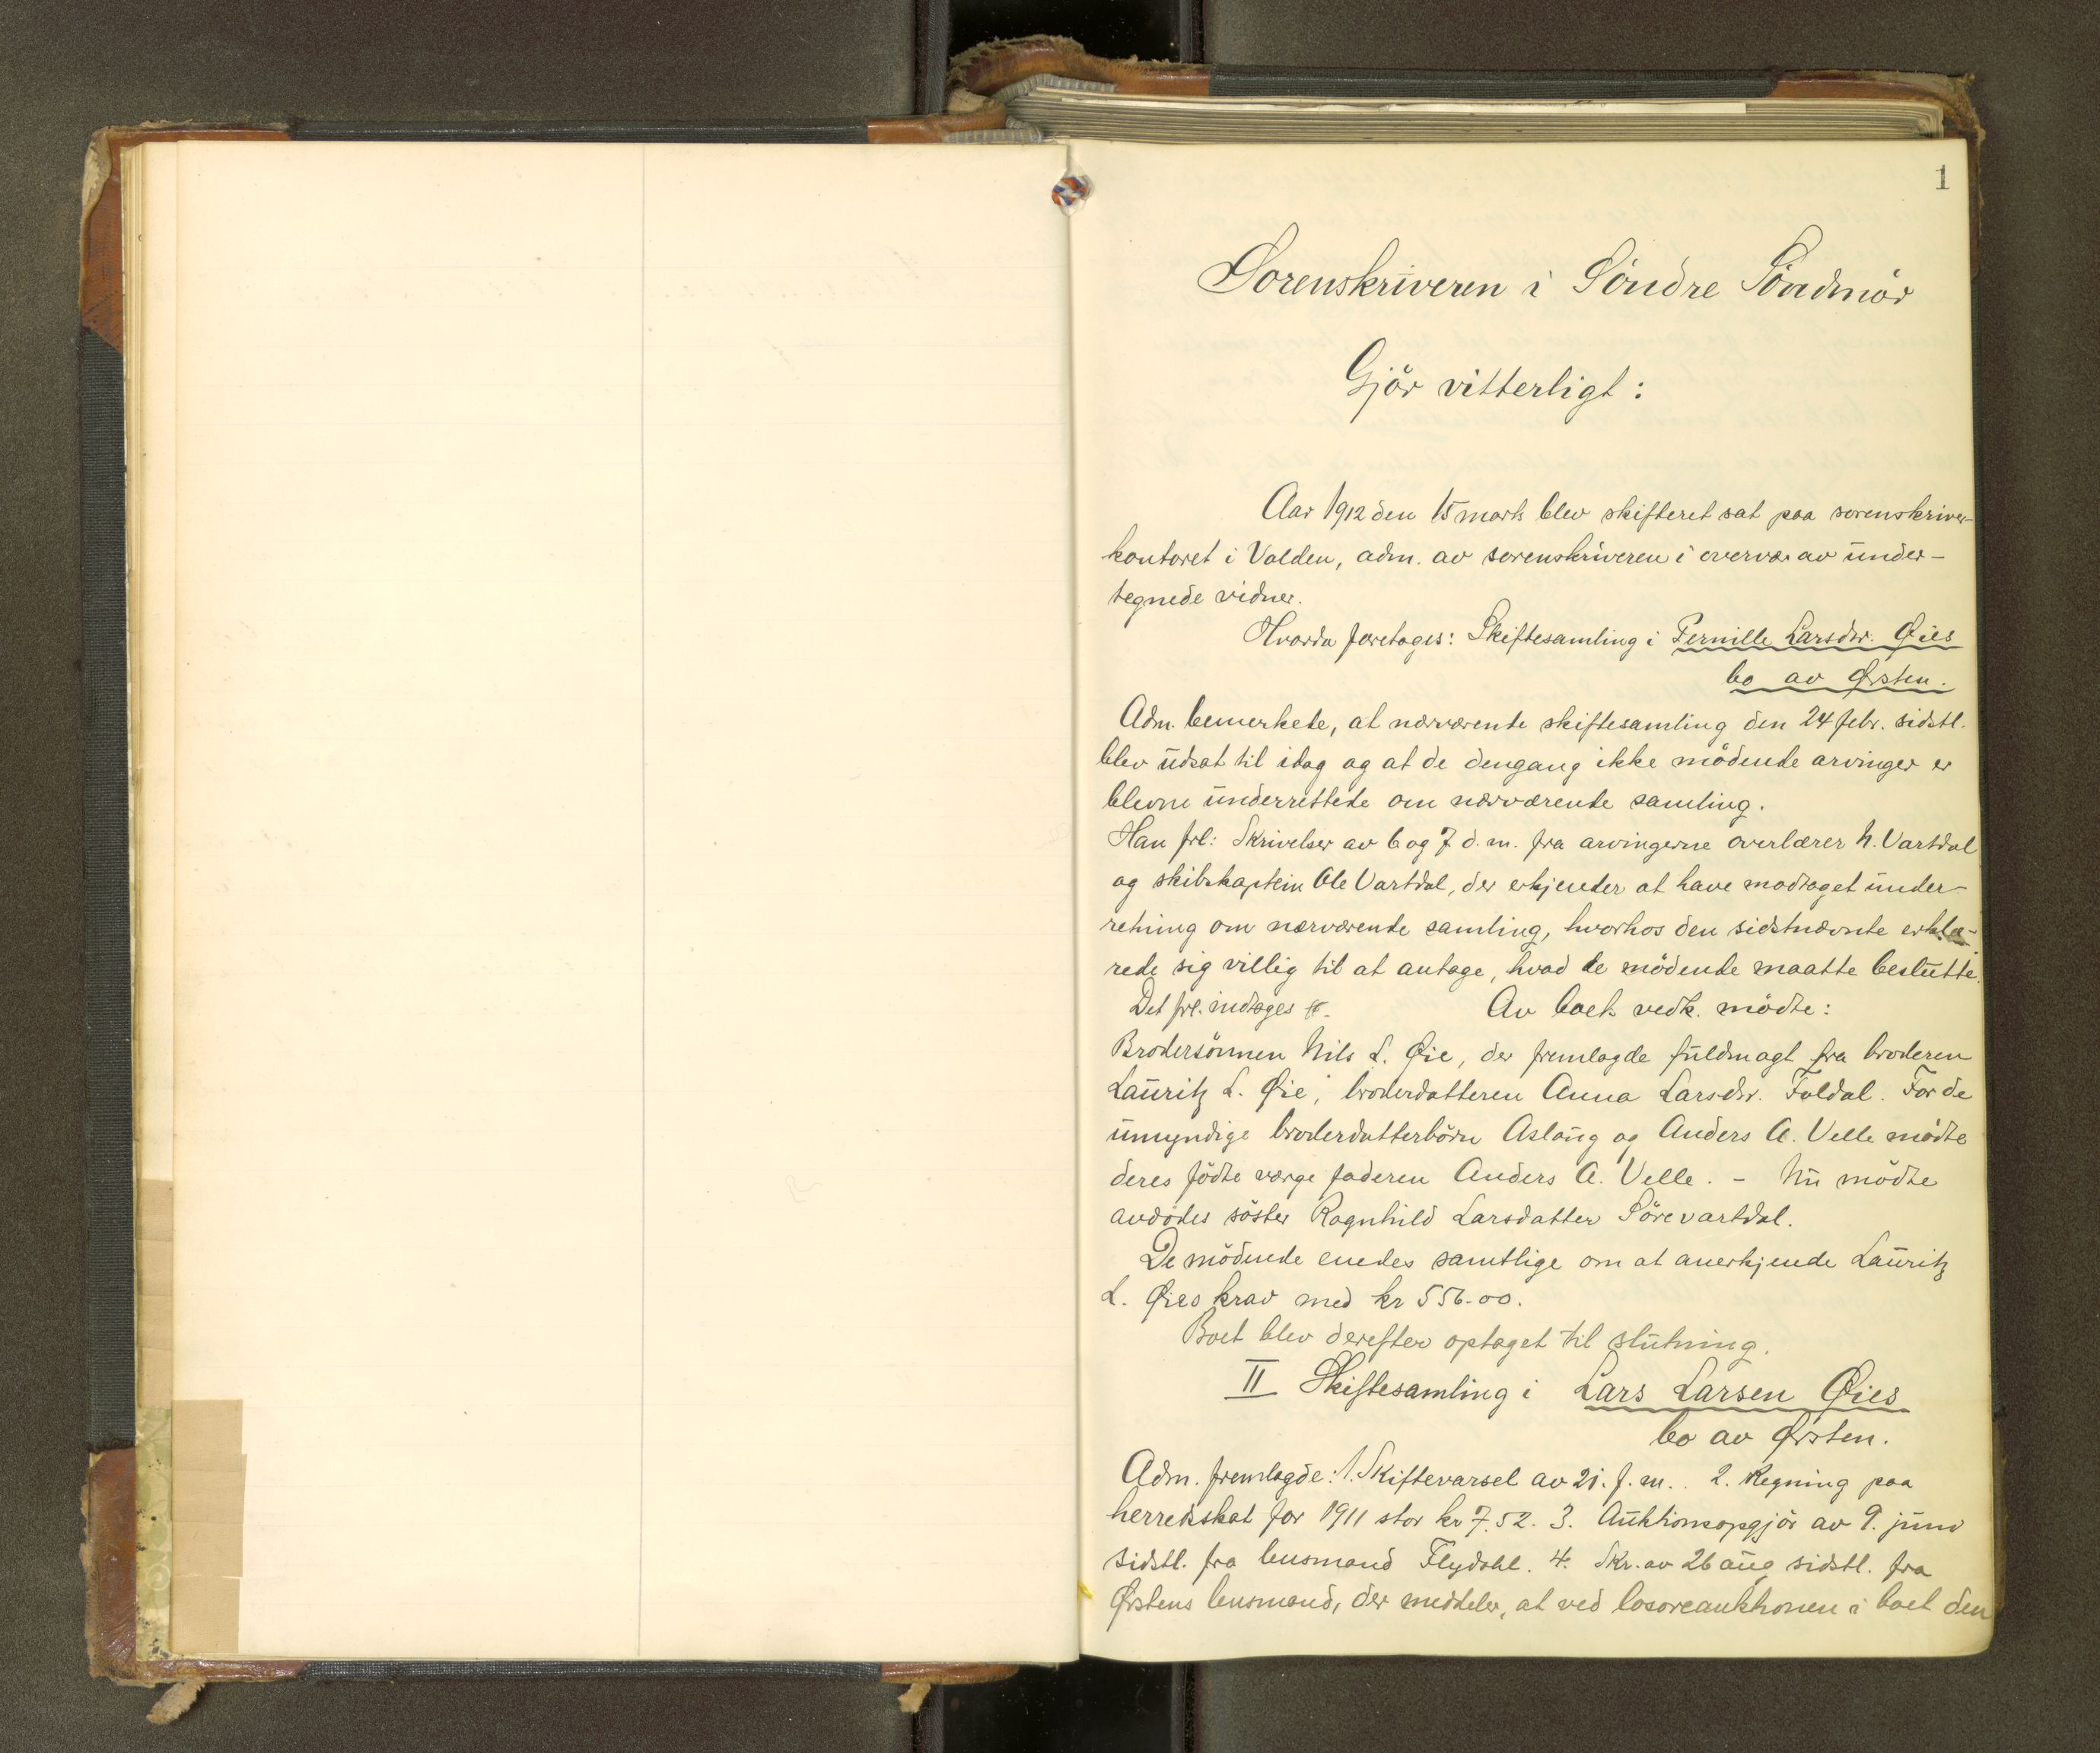 1
Sorenskriveren i Söndre Söndmör
Gjör vitterligt:
Aar 1912 den 15 marts blev skifteret sat paa sorenskriver-
kontoret i Volden, adm. av sorenskriveren i overvær av under-
tegnede vidner.
Hvorda foretoges: Skiftesamling i Pernille Larsdtr. Øies
bo av Ørsten.
Adm. bemerkete, at nærværente skiftesamling den 24 febr. sidstl.
blev udsat til idag og at de dengang ikke mödende arvinger er
blevne underrettede om nærværente samling.
Han frl: Skrivelser av 6 og 7 d.m. fra arvingerne overlærer N. Vartdal
og skibskaptein Ole Vartdal, der erkjender at have modtaget under-
retning om nærværente samling, hvorhos den sidstnævnte erklæ-
rede sig villig til at antage, hvad de mödende maatte beslutte.
Det frl. indtoges
Av boets vedk. mödte:
Brodersönnen Nils L. Øie, der fremlagde fuldmagt fra broderen
Lauritz L. Øie, broderdatteren Anna Larsdtr. Foldal. For de
umyndige broderdatterbörn Aslaug og Anders A. Velle mödte
deres födte værge faderen Anders A. Velle. - Nu mödte
avdödes söster Ragnhild Larsdatter Sörevartdal.
De mödende enedes samtlige om at anerkjende Lauritz
L. Øies krav med kr 556-00.
Boet blev derefter optaget til slutning.
II Skiftesamling i Lars Larsen Øies
bo av Ørsten.
Adm. fremlagde: 1. Skiftevarsel av 21. f.m.. 2. Regning paa
herredsskat for 1911 stor kr 7.52. 3. Auktionsopgjör av 9. juni
sidstl. fra lensmand Flydahl. 4. Skr. av 26 aug sidstl. fra
Ørstens lensmand, der meddeler, at ved losoreauktionen i boet den